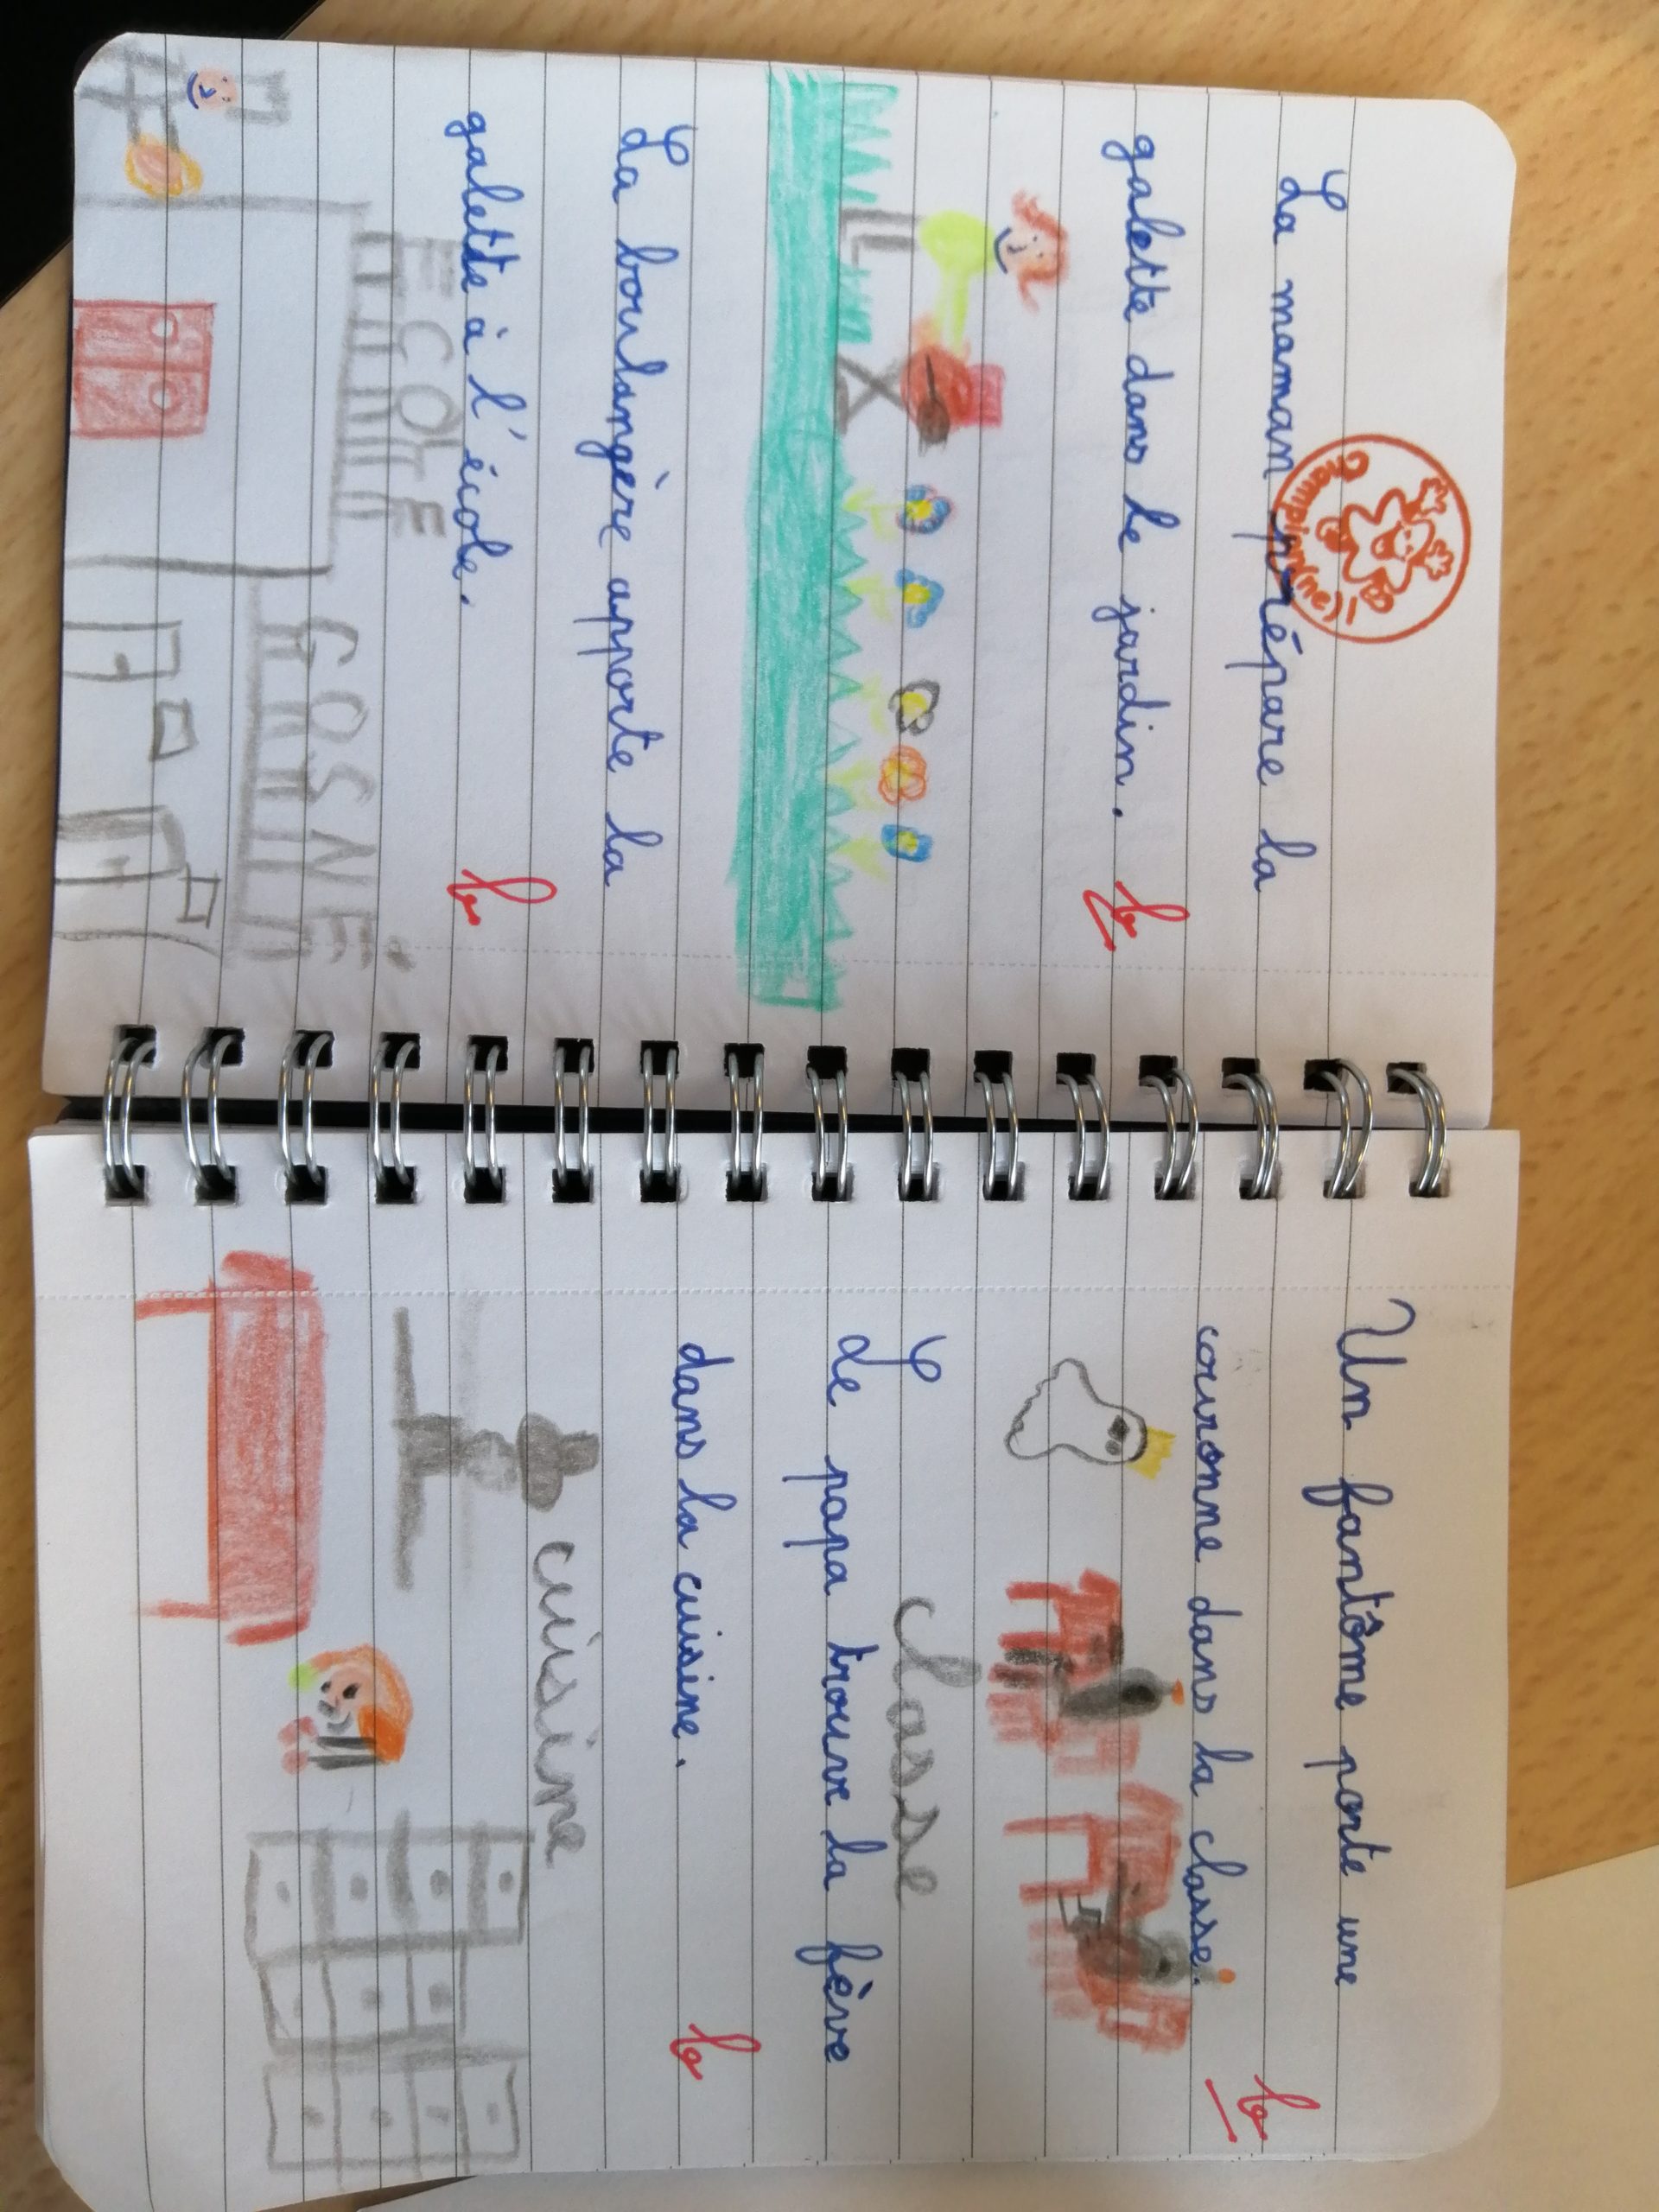 Champion(ne)!
La maman prépare la
galette dans le jardin.
La boulangère apporte la
galette à l'école.
ECOLE
GOSNE
Un fantôme porte une
couronne dans la classe.
classe
Le papa trouve la fève
dans la cuisine.
cuisine